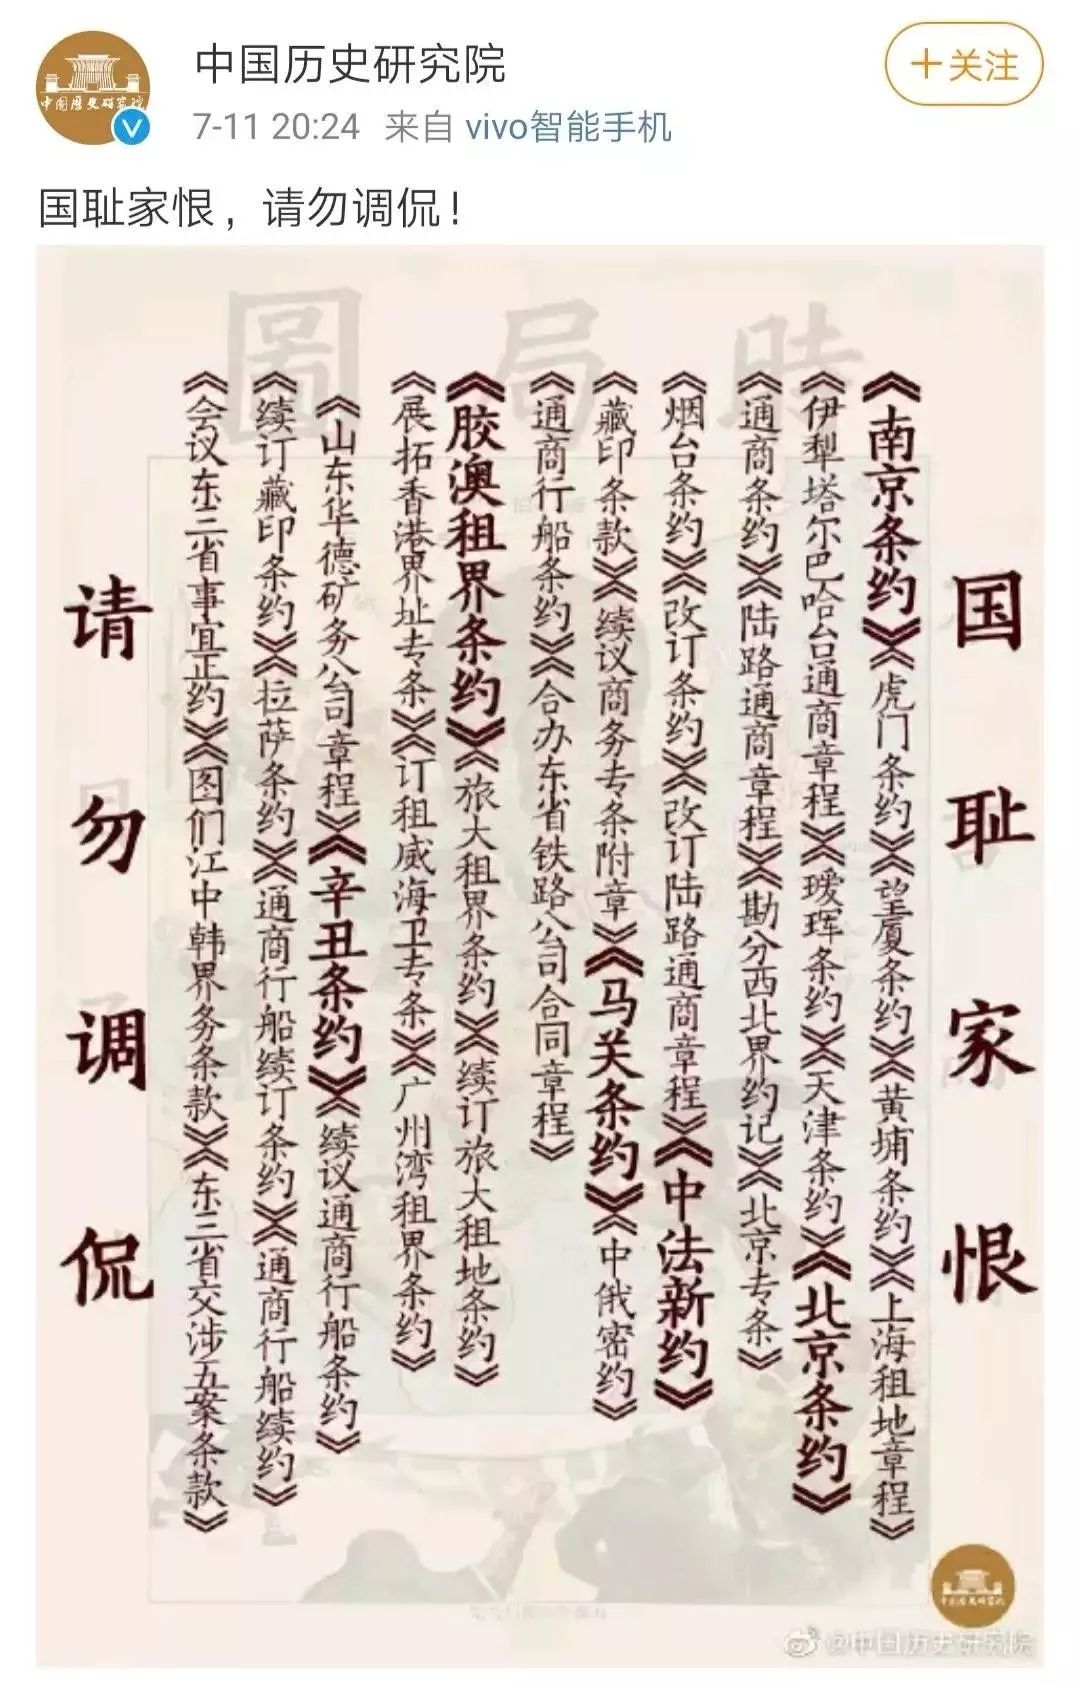 中国历史研究院
中国历史研究院
+关注
7-11 20:24 来自 vivo智能手机
国耻家恨，请勿调侃！
時局圖
国耻家恨
《南京条约》《虎门条约》《望厦条约》《黄埔条约》《上海租地章程》
《伊犁塔尔巴哈台通商章程》《瑷珲条约》《天津条约》《北京条约》
《通商条约》《陆路通商章程》《勘分西北界约记》《北京专条》
《烟台条约》《改订条约》《改订陆路通商章程》《中法新约》
《藏印条款》《续议商务专条附章》《马关条约》《中俄密约》
《通商行船条约》《合办东省铁路公司合同章程》
《胶澳租界条约》《旅大租界条约》《续订旅大租地条约》
《展拓香港界址专条》《订租威海卫专条》《广州湾租界条约》
《山东华德矿务公司章程》《辛丑条约》《续议通商行船条约》
《续订藏印条约》《拉萨条约》《通商行船续订条约》《通商行船续约》
《会议东三省事宜正约》《图们江中韩界务条款》《东三省交涉五案条款》
请勿调侃
中国历史研究院
@中国历史研究院